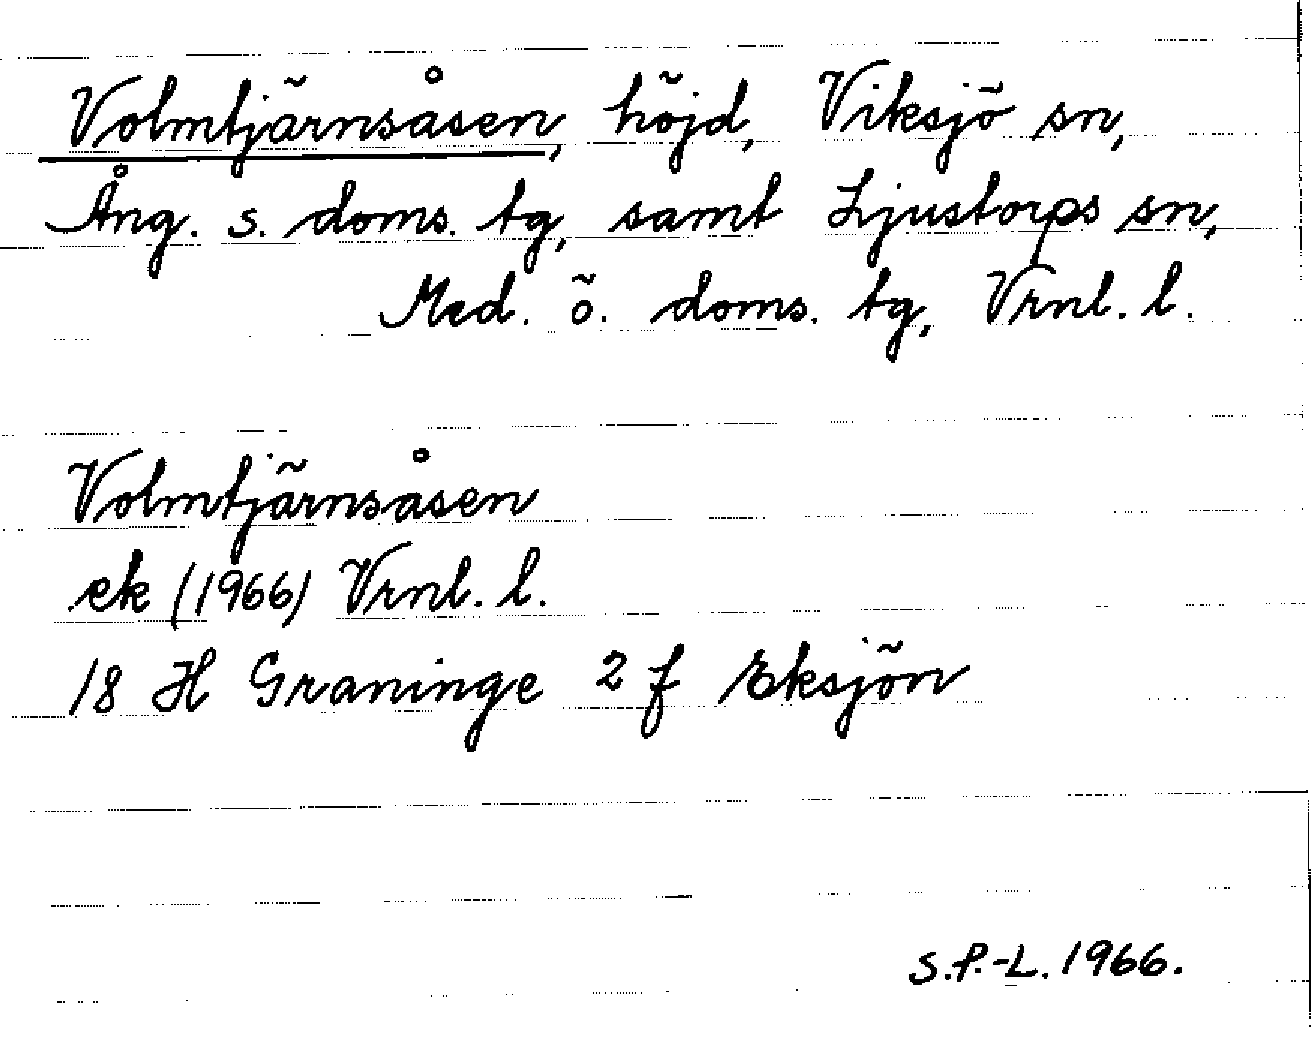 Volmtjärnsåsen, höjd, Viksjö sn,
Ång. s. doms. tg, samt Ljustorps sn,
Med. ö. doms. tg, Vrnl. l.
Volmtjärnsåsen
ek (1966) Vrnl. l.
18 H Graninge 2 f Eksjön
S.P.-L. 1966.